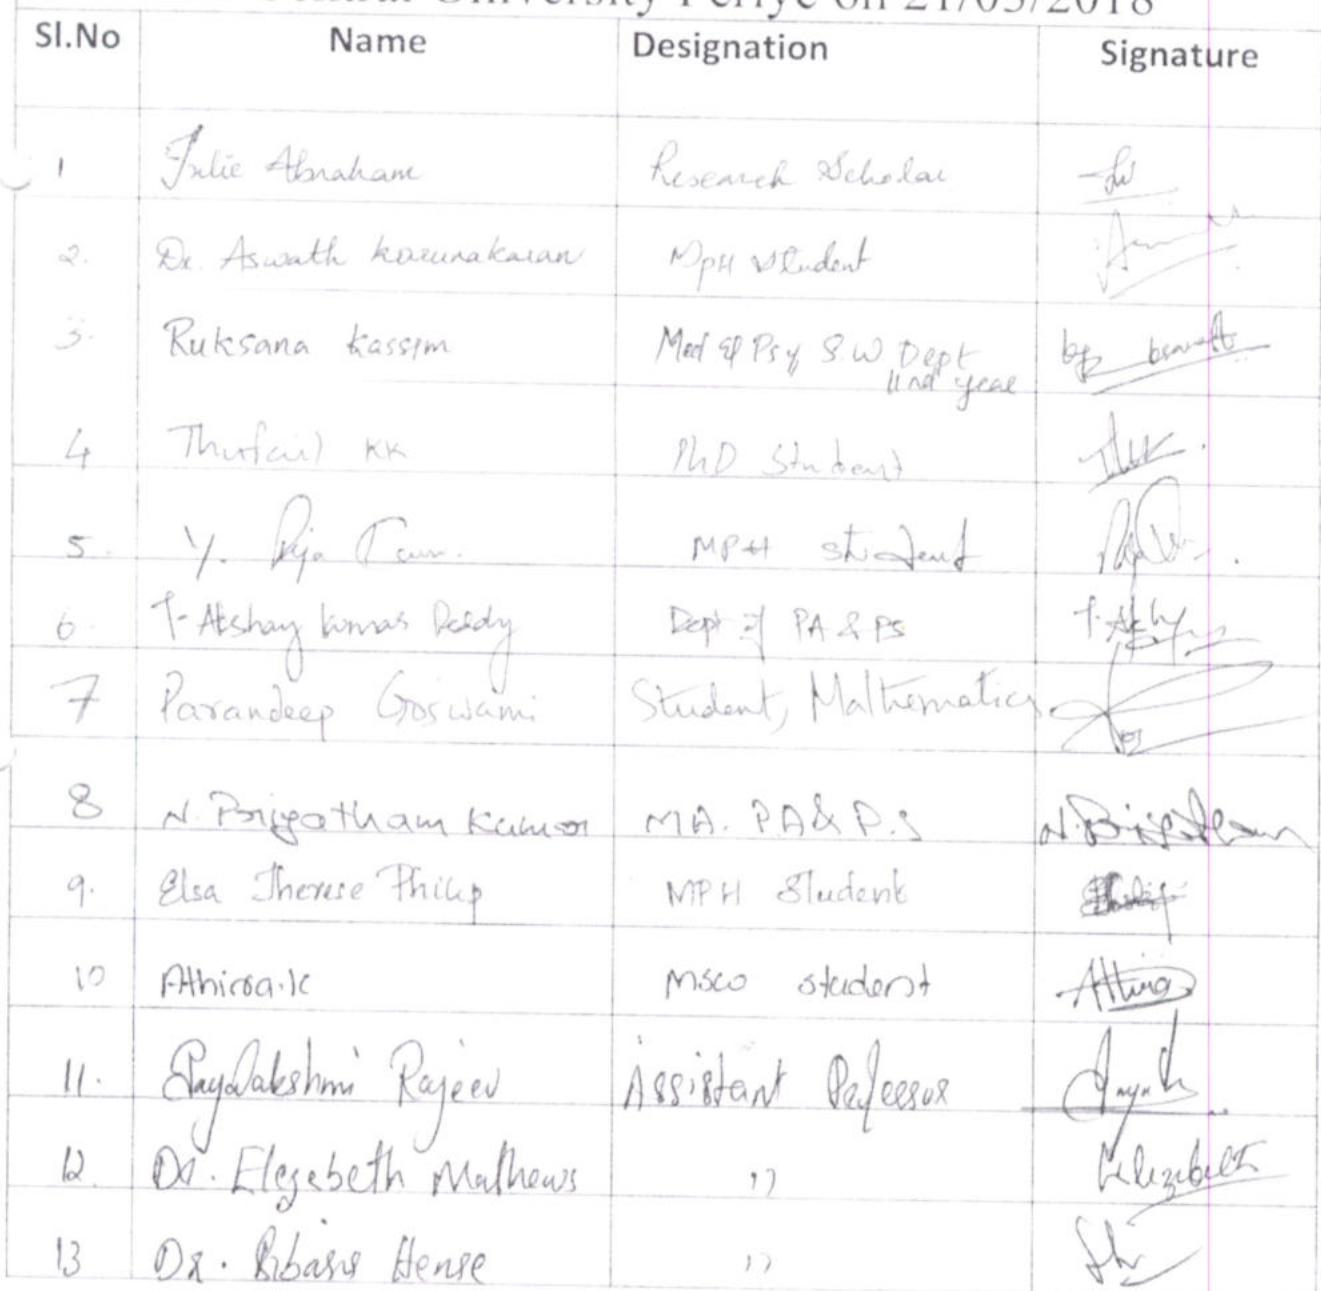 University Periye on 21/03/2018
Sl.No Name Designation Signature
1 Julie Abraham Research Scholar
2. Dr. Aswath Karunakaran MpH Student
3. Ruksana Kassim Med & Psy S.W Dept
IInd year
4 Thufail KK PhD Student
5. Y. MPH student
6. T. Akshay kumar Reddy Dept of PA & PS T. Akshay
7 Parandeep Goswami Student, Mathematics
8 N. Priyatham Kumar MA. PA & P.S N. Priyatham
9. Elsa Therese Philip MPH Student
10 Athira.K student Athira
11. Rajeev Assistant Professor
12. Dr. Elezabeth Mathews ,, Elizabeth
13 Dr. ,,